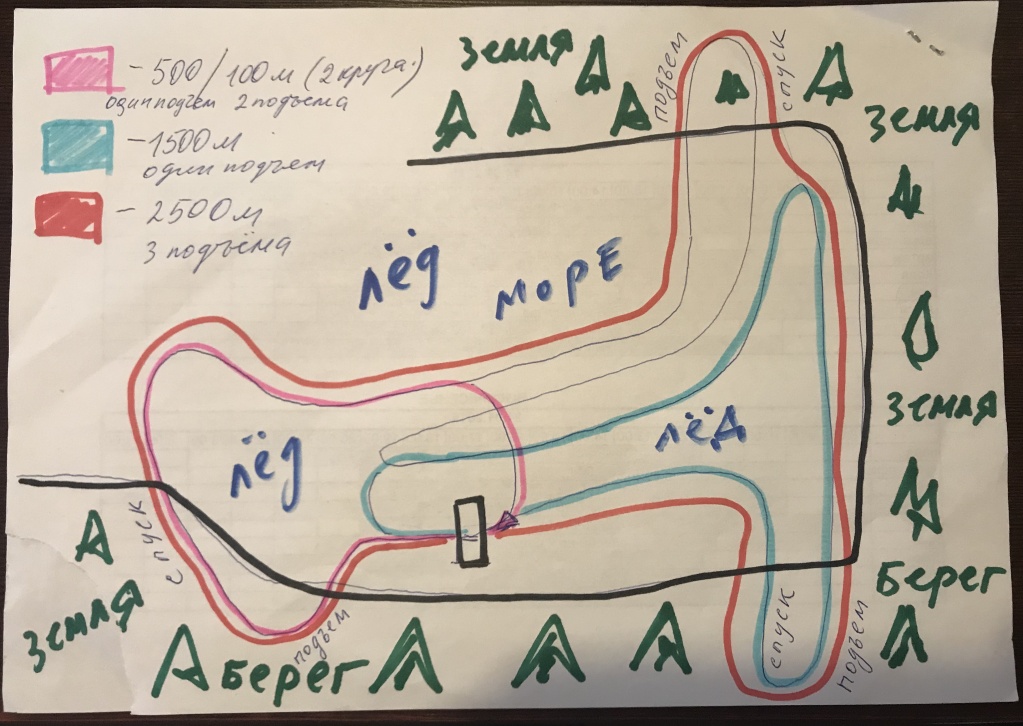 - 500/100м (2 круга.)
один подъем 2 подъема
- 1500м
один подъем
- 2500м
3 подъёма
Земля
подъем
спуск
Земля
лёд
море
Земля
лёд
лёд
спуск
Берег
Земля
подъем
Берег
спуск
подъем